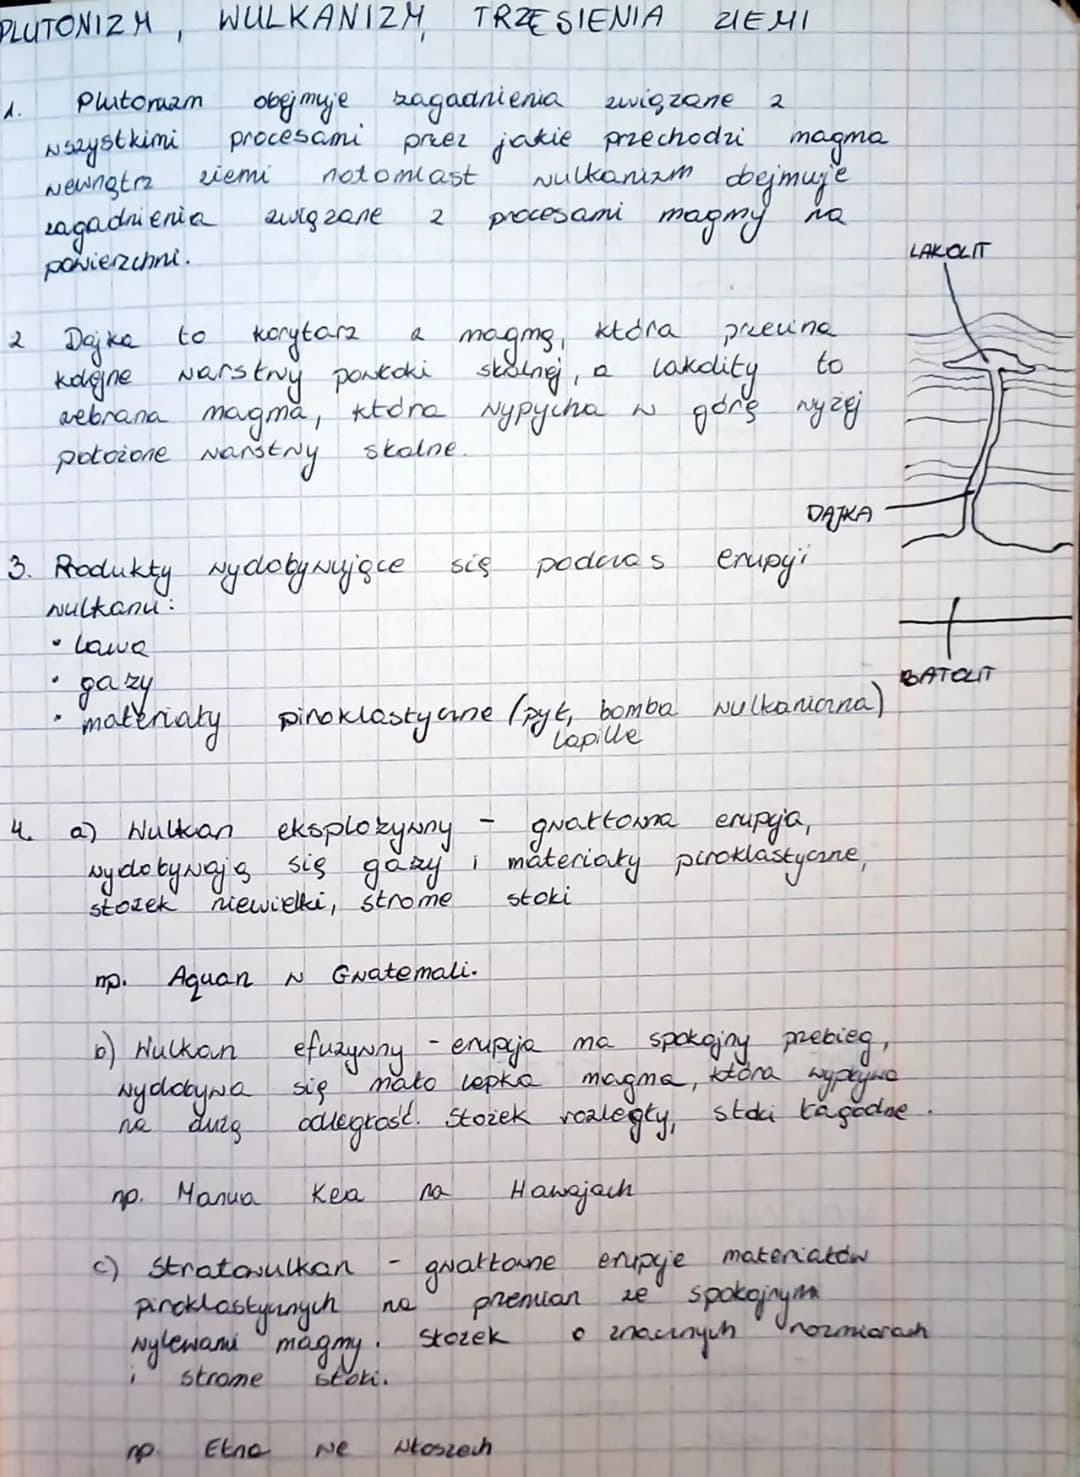 PLUTONIZM, WULKANIZM, TRZĘSIENIA ZIEMI
1. Plutonizm obejmuje zagadnienia związane z
wszystkimi procesami przez jakie przechodzi magma
wewnątrz ziemi natomiast wulkanizm obejmuje
zagadnienia związane z procesami magmy na
powierzchni.
LAKOLIT
2 Dajka to korytarz z magmą, która przecina
kolejne warstwy powłoki skalnej, a lakolity to
zebrana magma, która wypycha w górę wyżej
położone warstwy skalne.
DAJKA
3. Produkty wydobywujące się podczas erupcji
wulkanu:
• lawa
• gazy
• materiały piroklastyczne (pył, bomba wulkaniczna)
lapille
BATOLIT
4. a) Wulkan eksplozywny - gwałtowna erupcja,
wydobywają się gazy i materiały piroklastyczne,
stożek niewielki, strome stoki
np. Aquan w Gwatemali.
b) Wulkan efuzywny - erupcja ma spokojny przebieg,
wydobywa się mało lepka magma, która wypływa
na dużą odległość. Stożek rozległy, stoki łagodne.
np. Manua Kea na Hawajach
c) Stratowulkan - gwałtowne erupcje materiałów
piroklastycznych na przemian ze spokojnym
wylewami magmy. Stożek o znacznych rozmiarach
i strome stoki.
np. Etna we Włoszech